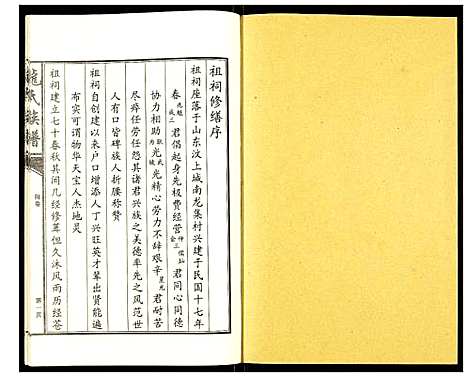 祖祠修缮序
祖祠座落于山东汶上城南龙集村兴建于民国十七年
春 君倡起身先极费经营 君同心同德
协力相助 光 光精心劳力不辞艰辛 君耐苦
尽瘁任劳任怨其诸君兴族之美德率先之风范世
人有口皆碑族人折腰称赞
祖祠自创建以来户口增添人丁兴旺英才辈出贤能遍
布实可谓物华天宝人杰地灵
祖祠建立七十春秋其间几经修葺但久沐风雨历经苍
氏族谱
卷
第一页